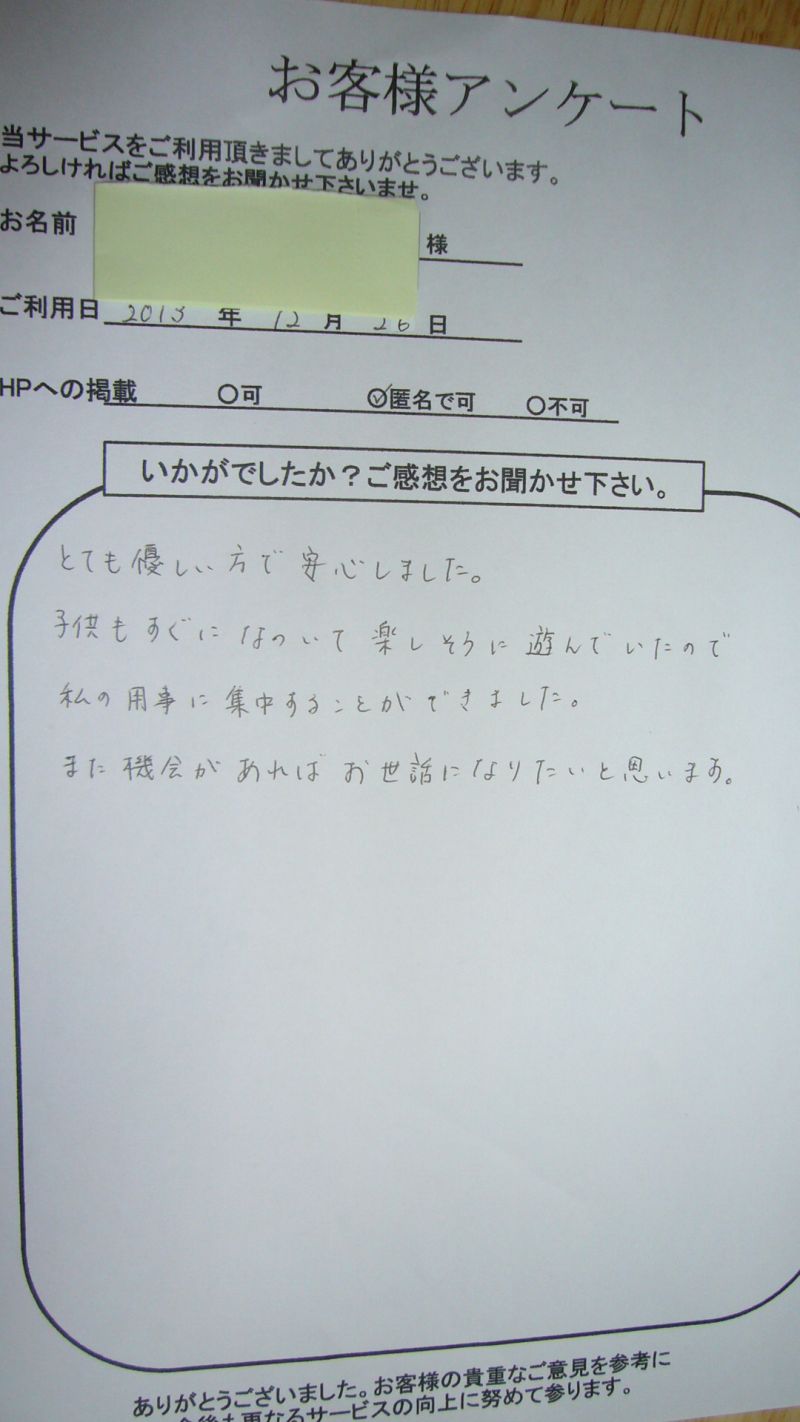 お客様アンケート
当サービスをご利用頂きましてありがとうございます。
よろしければご感想をお聞かせ下さいませ。
お名前 様
ご利用日 2013 年 12 月 26 日
HPへの掲載 ○可 ✓匿名で可 ○不可
いかがでしたか？ご感想をお聞かせ下さい。
とても優しい方で安心しました。
子供もすぐになついて楽しそうに遊んでいたので
私の用事に集中することができました。
また機会があればお世話になりたいと思います。
ありがとうございました。お客様の貴重なご意見を参考に
今後も更なるサービスの向上に努めて参ります。